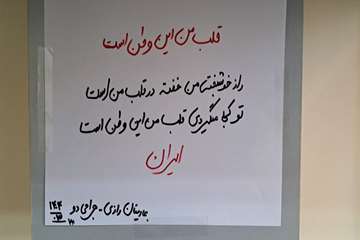 قلب من این وطن است
راز خوشبختی من خفته در قلب من است
تو کجا میگردی قلب من این وطن است
ایران
بیمارستان رازی - جراحی دو